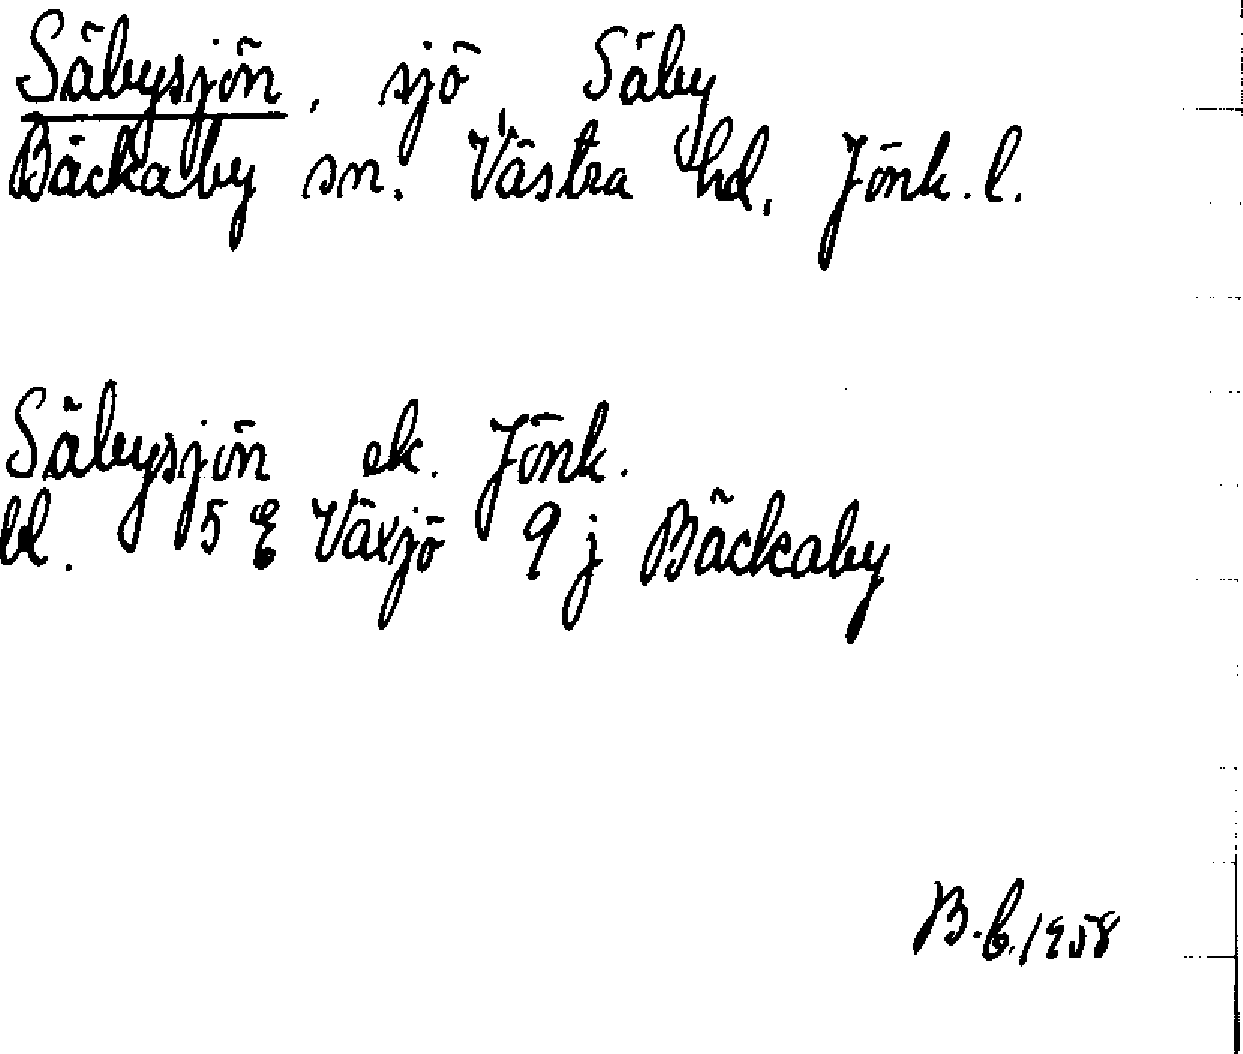 Säbysjön, sjö, Säby
Bäckaby sn. Västra hd, Jönk. l.
Säbysjön ek. Jönk.
bl. 5 E Växjö 9 j Bäckaby
B. 1958